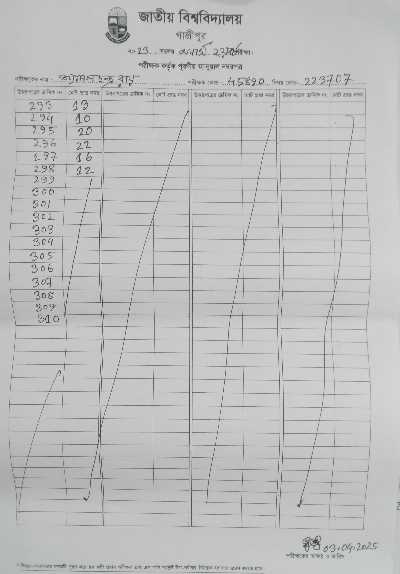 জাতীয় বিশ্ববিদ্যালয়
গাজীপুর
২০23 সনের অনার্স ২য় বর্ষ পরীক্ষা
পরীক্ষক কর্তৃক পূরণীয় ম্যানুয়াল নম্বরপত্র
পরীক্ষকের নাম : চন্দ্র রায় পরীক্ষক কোড- 45890 বিষয় কোড- 223707
উত্তরপত্রের ক্রমিক নং মোট প্রাপ্ত নম্বর উত্তরপত্রের ক্রমিক নং মোট প্রাপ্ত নম্বর উত্তরপত্রের ক্রমিক নং মোট প্রাপ্ত নম্বর উত্তরপত্রের ক্রমিক নং মোট প্রাপ্ত নম্বর
293 13
294 10
295 20
296 22
297 16
298 12
299
300
301
302
303
304
305
306
307
308
309
310
03.04.2025
পরীক্ষকের স্বাক্ষর ও তারিখ